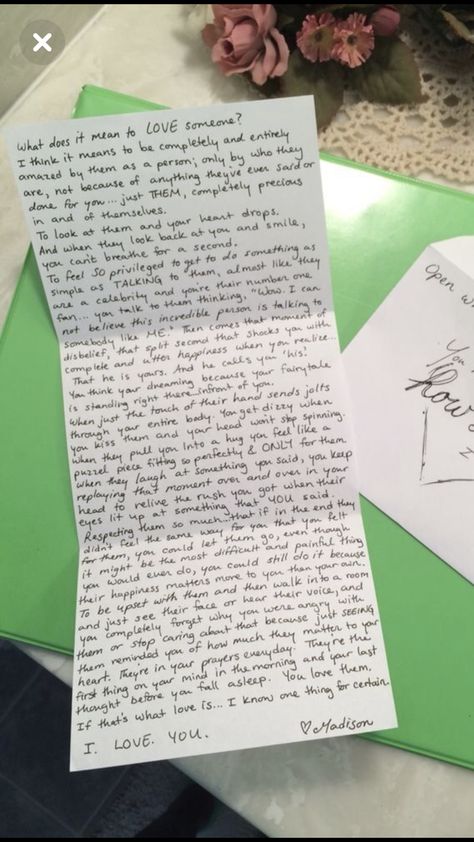 What does it mean to LOVE someone?
I think it means to be completely and entirely
amazed by them as a person; only by who they
are, not because of anything they've ever said or
done for you... just THEM, completely precious
in and of themselves.
To look at them and your heart drops.
And when they look back at you and smile,
you can't breathe for a second.
To feel SO privileged to get to do something as
simple as TALKING to them, almost like they
are a celebrity and you're their number one
fan... you talk to them thinking, "Wow. I can
not believe this incredible person is talking to
somebody like ME. Then comes that moment of
disbelief, that split second that shocks you with
complete and utter happiness when you realize...
That he is yours. And he calls you 'his'.
You think your dreaming because your fairytale
is standing right there infront of you.
When just the touch of their hand sends jolts
through your entire body. You get dizzy when
you kiss them and your head won't stop spinning.
When they pull you into a hug you feel like a
puzzel piece fitting so perfectly & ONLY for them.
When they laugh at something you said, you keep
replaying that moment over and over in your
head to relive the rush you got when their
eyes lit up at something that YOU said.
Respecting them so much... that if in the end they
didn't feel the same way for you that you felt
for them, you could let them go, even though
it might be the most difficult and painful thing
you would ever do, you could still do it because
their happiness matters more to you then your own.
To be upset with them and then walk into a room
and just see their face or hear their voice, and
you completely forget why you were angry with
them or stop caring about that because just SEEING
them reminded you of how much they matter to your
heart. They're in your prayers everyday. They're the
first thing on your mind in the morning and your last
thought before you fall asleep. You love them.
If that's what love is... I know one thing for certain.
I. LOVE. YOU.
♡Madison
Open w
You
how